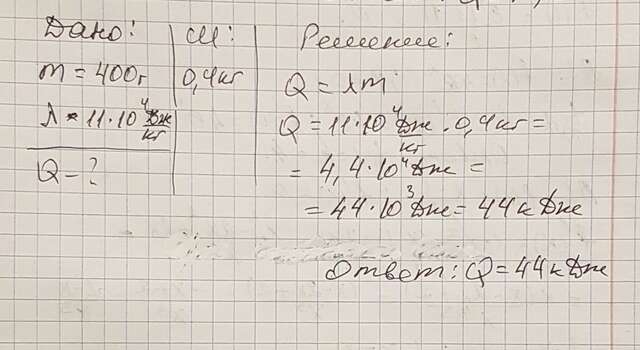 Дано:
m = 400г
λ = 11·10⁴ Дж/кг
Q = ?
СИ:
0,4кг
Решение:
Q = λm
Q = 11·10⁴ Дж/кг · 0,4кг =
= 4,4·10⁴ Дж =
= 44·10³ Дж = 44кДж
Ответ: Q = 44кДж